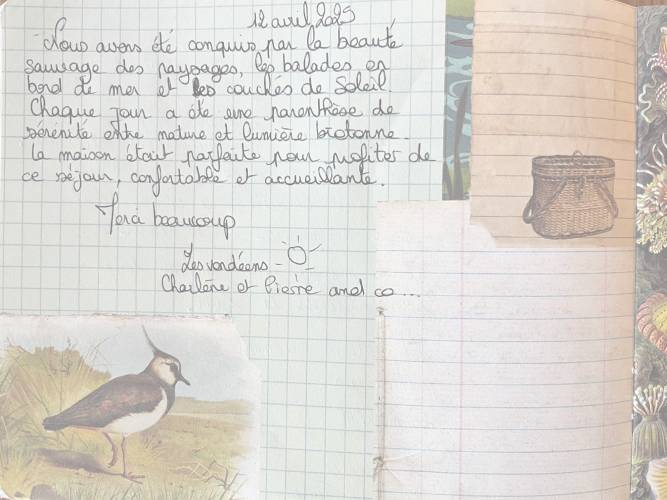 12 avril 2025
Nous avons été conquis par la beauté
sauvage des paysages, les balades en
bord de mer et les couchés de Soleil.
Chaque jour a été une parenthèse de
sérénité entre nature et lumière bretonne.
La maison était parfaite pour profiter de
ce séjour, confortable et accueillante.
Merci beaucoup
Les vendéens -
Charlène et Pierre and co...